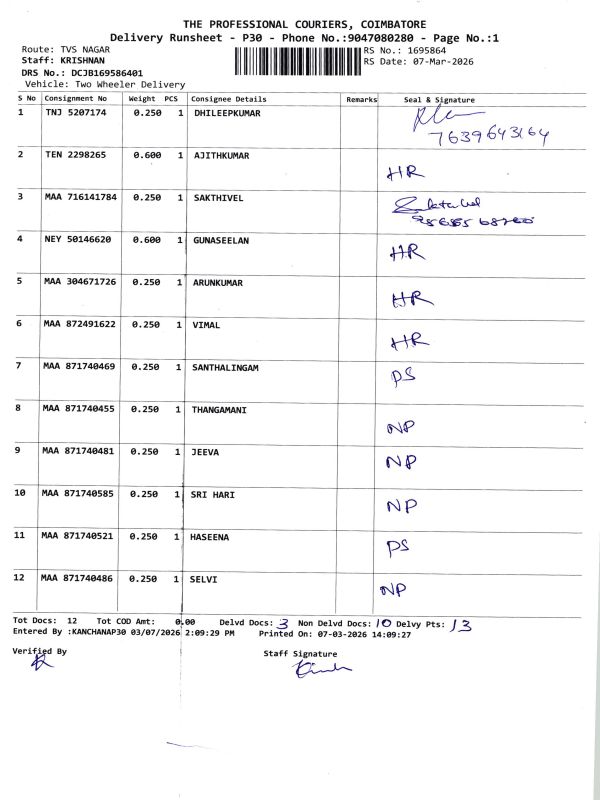 THE PROFESSIONAL COURIERS, COIMBATORE
Delivery Runsheet - P30 - Phone No.:9047080280 - Page No.:1
Route: TVS NAGAR
RS No.: 1695864
Staff: KRISHNAN
RS Date: 07-Mar-2026
DRS No.: DCJB169586401
Vehicle: Two Wheeler Delivery
S No Consignment No Weight PCS Consignee Details Remarks Seal & Signature
1 TNJ 5207174 0.250 1 DHILEEPKUMAR
7639643164
2 TEN 2298265 0.600 1 AJITHKUMAR
HR
3 MAA 716141784 0.250 1 SAKTHIVEL
4 NEY 50146620 0.600 1 GUNASEELAN
HR
5 MAA 304671726 0.250 1 ARUNKUMAR
HR
6 MAA 872491622 0.250 1 VIMAL
HR
7 MAA 871740469 0.250 1 SANTHALINGAM
PS
8 MAA 871740455 0.250 1 THANGAMANI
NP
9 MAA 871740481 0.250 1 JEEVA
NP
10 MAA 871740585 0.250 1 SRI HARI
NP
11 MAA 871740521 0.250 1 HASEENA
PS
12 MAA 871740486 0.250 1 SELVI
NP
Tot Docs: 12 Tot COD Amt: 0.00 Delvd Docs: 3 Non Delvd Docs: 10 Delvy Pts: 13
Entered By :KANCHANAP30 03/07/2026 2:09:29 PM Printed On: 07-03-2026 14:09:27
Verified By Staff Signature